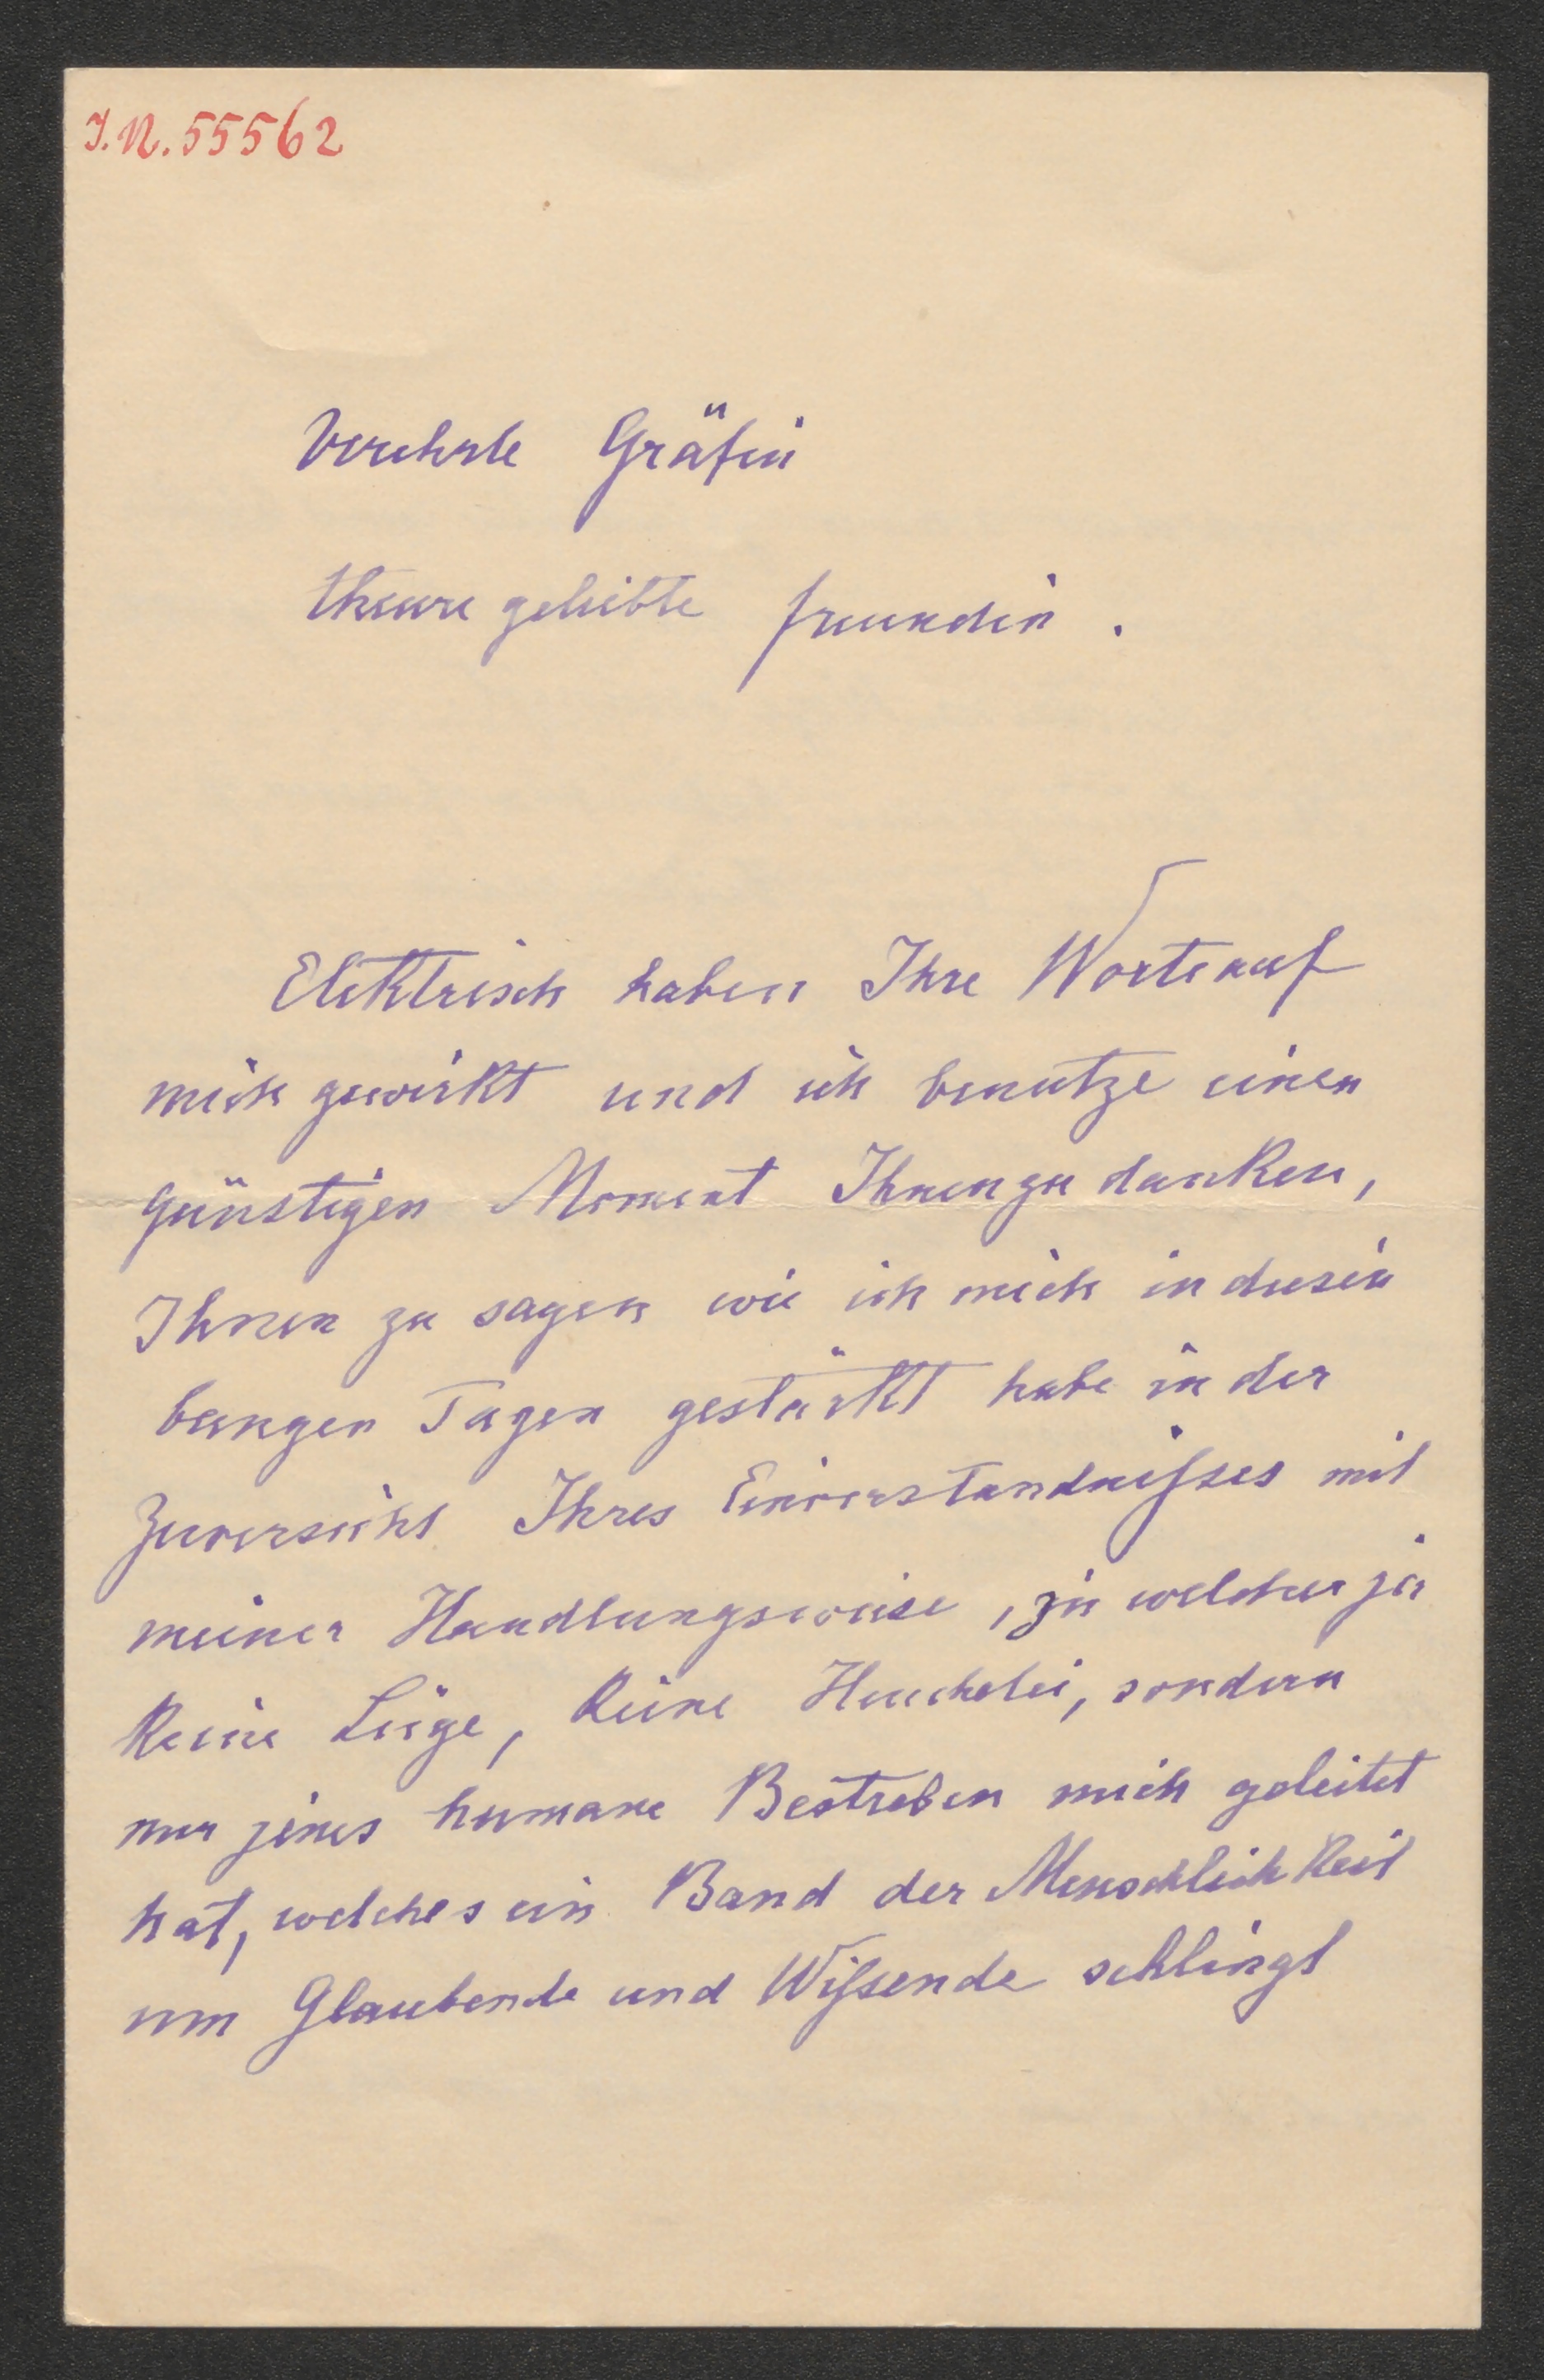 I.N. 55562
Verehrte Gräfin
theure geliebte Freundin .
Elektrisch haben Ihre Worte auf
mich gewirkt und ich benutze einen
günstigen Moment Ihnen zu danken,
Ihnen zu sagen wie ich mich in diesen
bangen Tagen gestärkt habe in der
Zuversicht Ihres Einverstandnißses mit
meiner Handlungsweise , zu welcher ja
keine Lüge, keine Heuchelei, sondern
nur jenes humane Bestreben mich geleitet
hat, welches ein Band der Menschlichkeit
um Glaubende und Wißsende schlingt